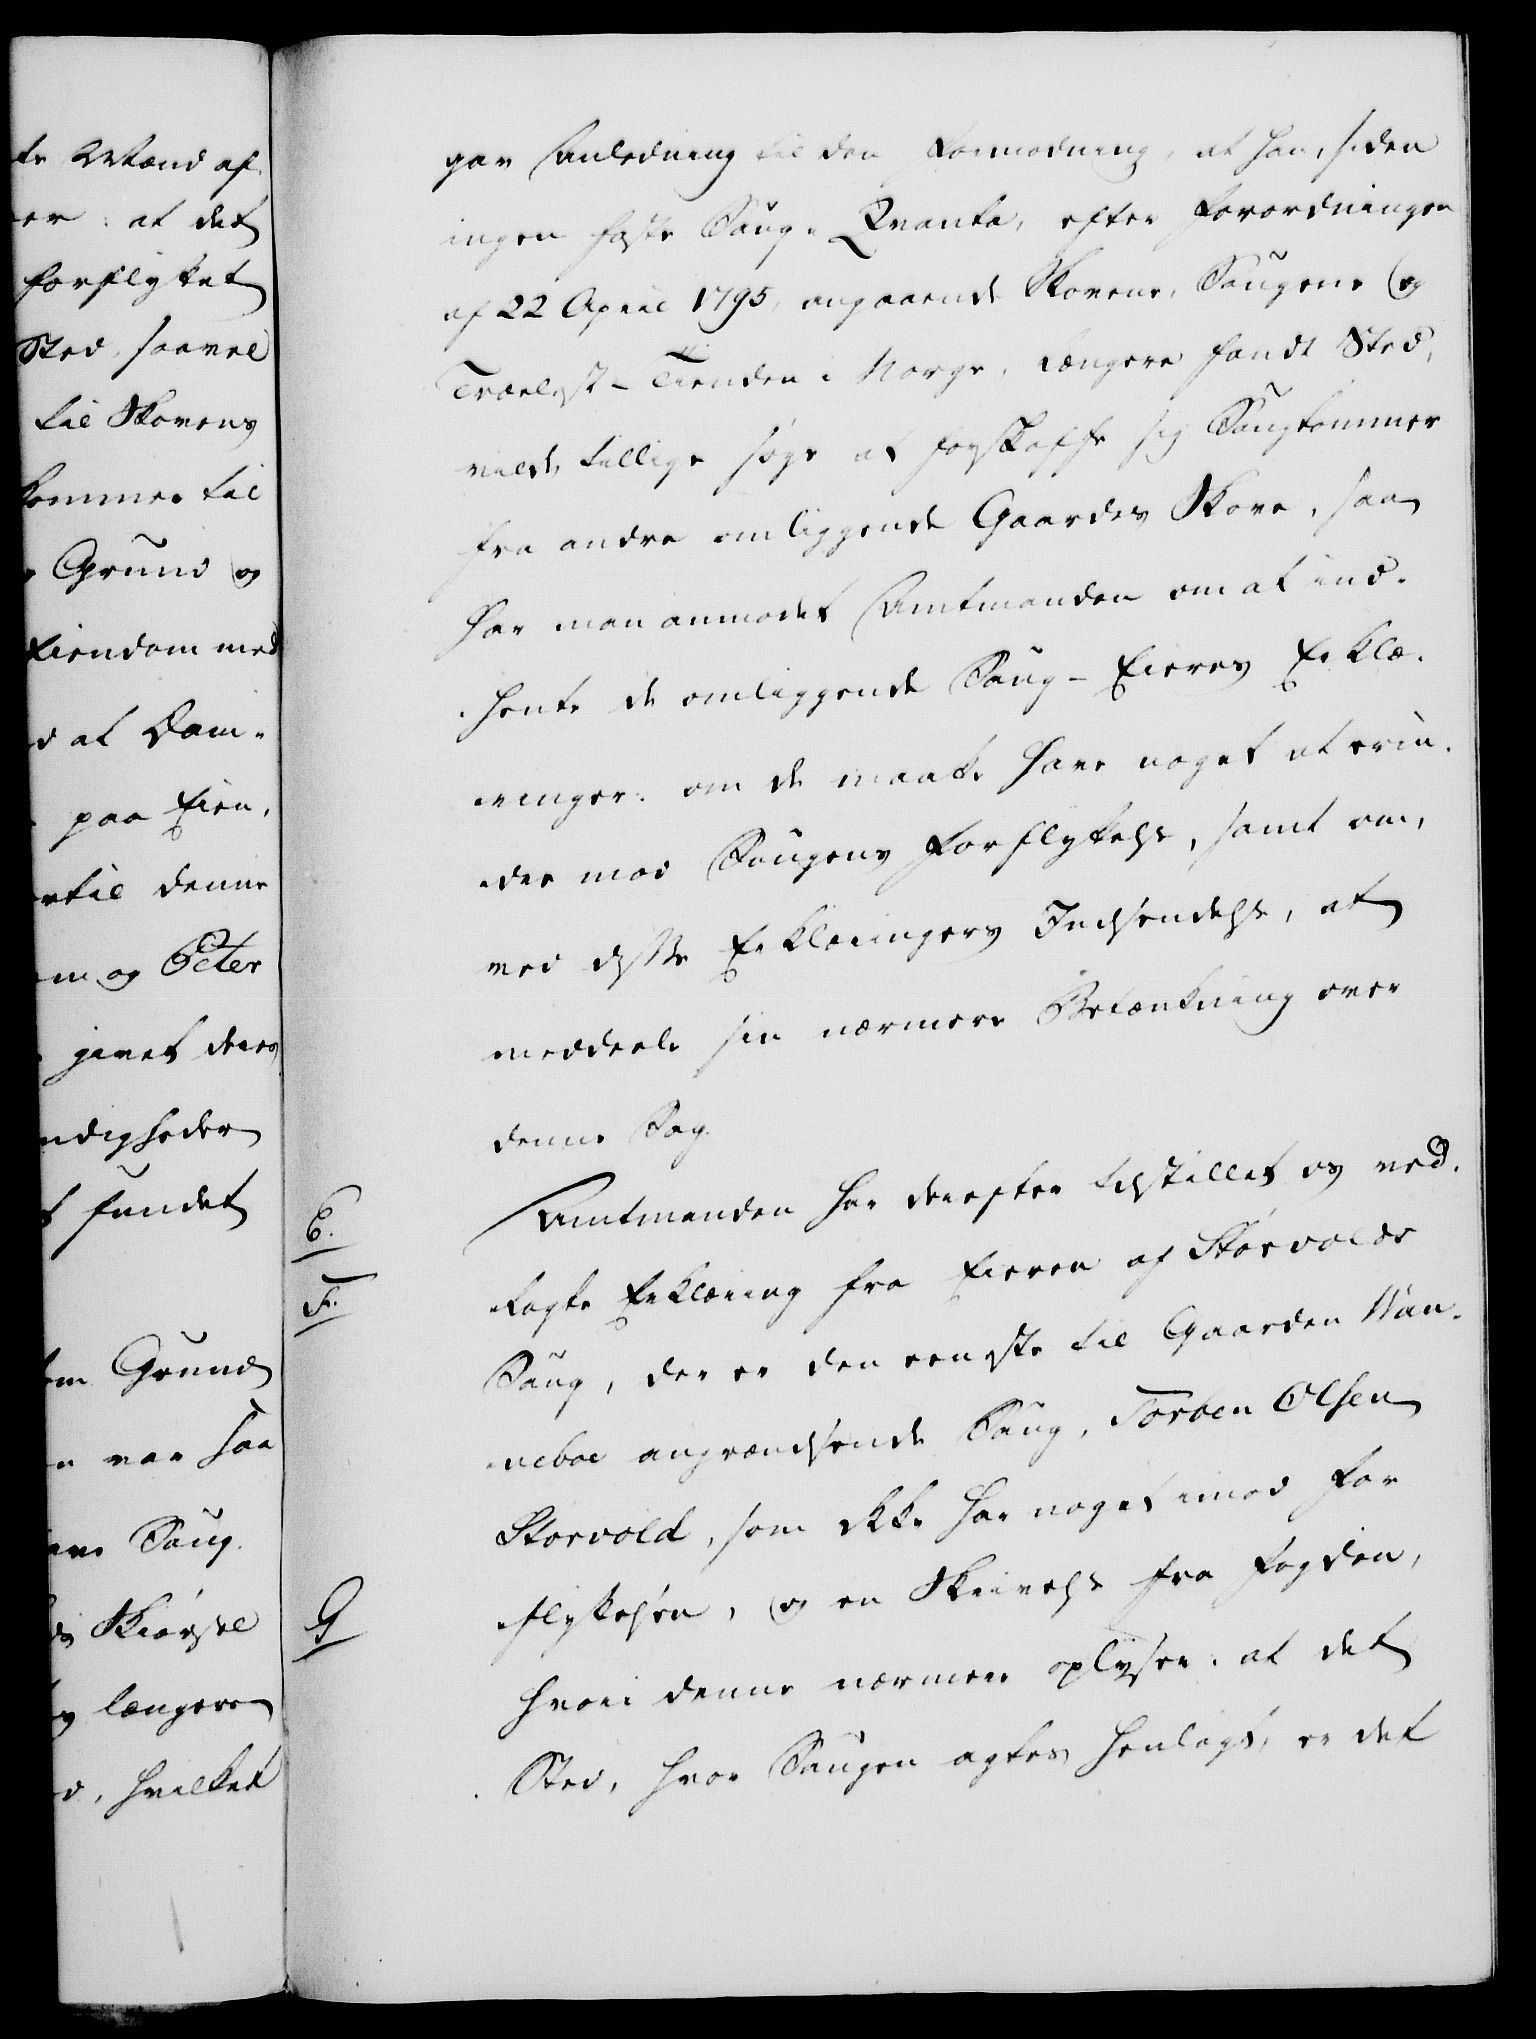 te Mænd af
er: at det
forflyttet
Sted, saavel
til Skovens
kommer til
Grund og
Eiendom med
at Dom-
paa Eien,
rtil denne
m og Peter
givet deres
ndigheder
t fundet
em Grund
n var saa
ene Saug.
Skiøssel
længere
d, hvilket
gav Anledning til den Formodning, at han, siden
ingen faste Saug-Qvanta, efter Forordningen
af 22 April 1795, angaaende Skovene, Saugene og
Trælast-Tienden i Norge, længere fandt Sted,
vilde tillige søge at forskaffe sig Saugtømmer
fra andre omliggende Gaardes Skove, saa
har man anmodet Amtmanden om at ind-
hente de omliggende Saug-Eieres Erklæ-
ringer: om de maatte have noget at erin-
dre mod Saugens Forflyttelse, samt om,
ved disse Erklæringers Indsendelse, at
meddeele sin nærmere Betænkning over
denne Sag.
E.
Amtmanden har derefter tilstillet os ved-
F.
lagte Erklæring fra Eieren af Storvolds
Saug, der er den eeneste til Gaarden Nan-
neboe angrændsende Saug, Torben Olsen
Storvold, som ikke har noget imod For
flyttelsen, og en Skrivelse fra Fogden,
G
hvori denne nærmere oplyser: at det
Sted, hvor Saugen agtes henlagt, er det